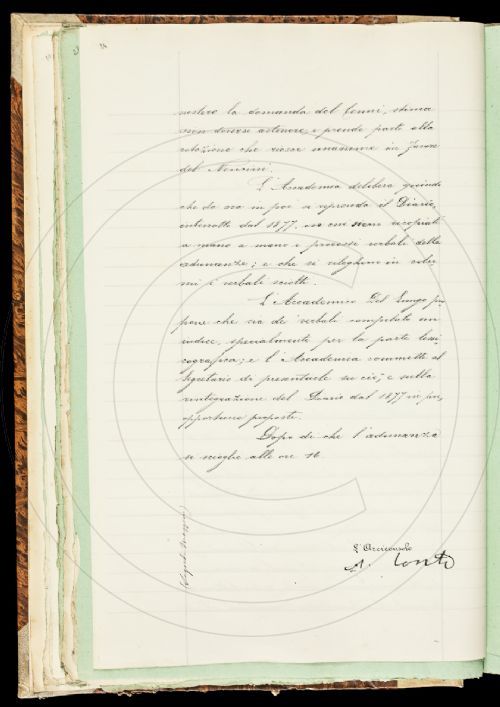 nostero la domanda del Conni, stima
non doversi astenere, e prende parte alla
votazione che riesce unanime in favore
del Nencini.
L'Accademia delibera quindi
che da ora in poi si riprenda il Diario,
interrotto dal 1877, in cui siano ricopiati
a mano a mano i processi verbali delle
adunanze; e che si rileghino in volu
mi i verbali sciolti.
L'Accademico Del Lungo pro
pone che sia de' verbali compilato un
indice, specialmente per la parte lessi
cografica; e l'Accademia commette al
Segretario di presentarle su ciò, e sulla
reintegrazione del Diario dal 1877 in poi,
opportune proposte.
Dopo di che l'adunanza
si scioglie alle ore 16.
L'Arciconsolo
A. Conti